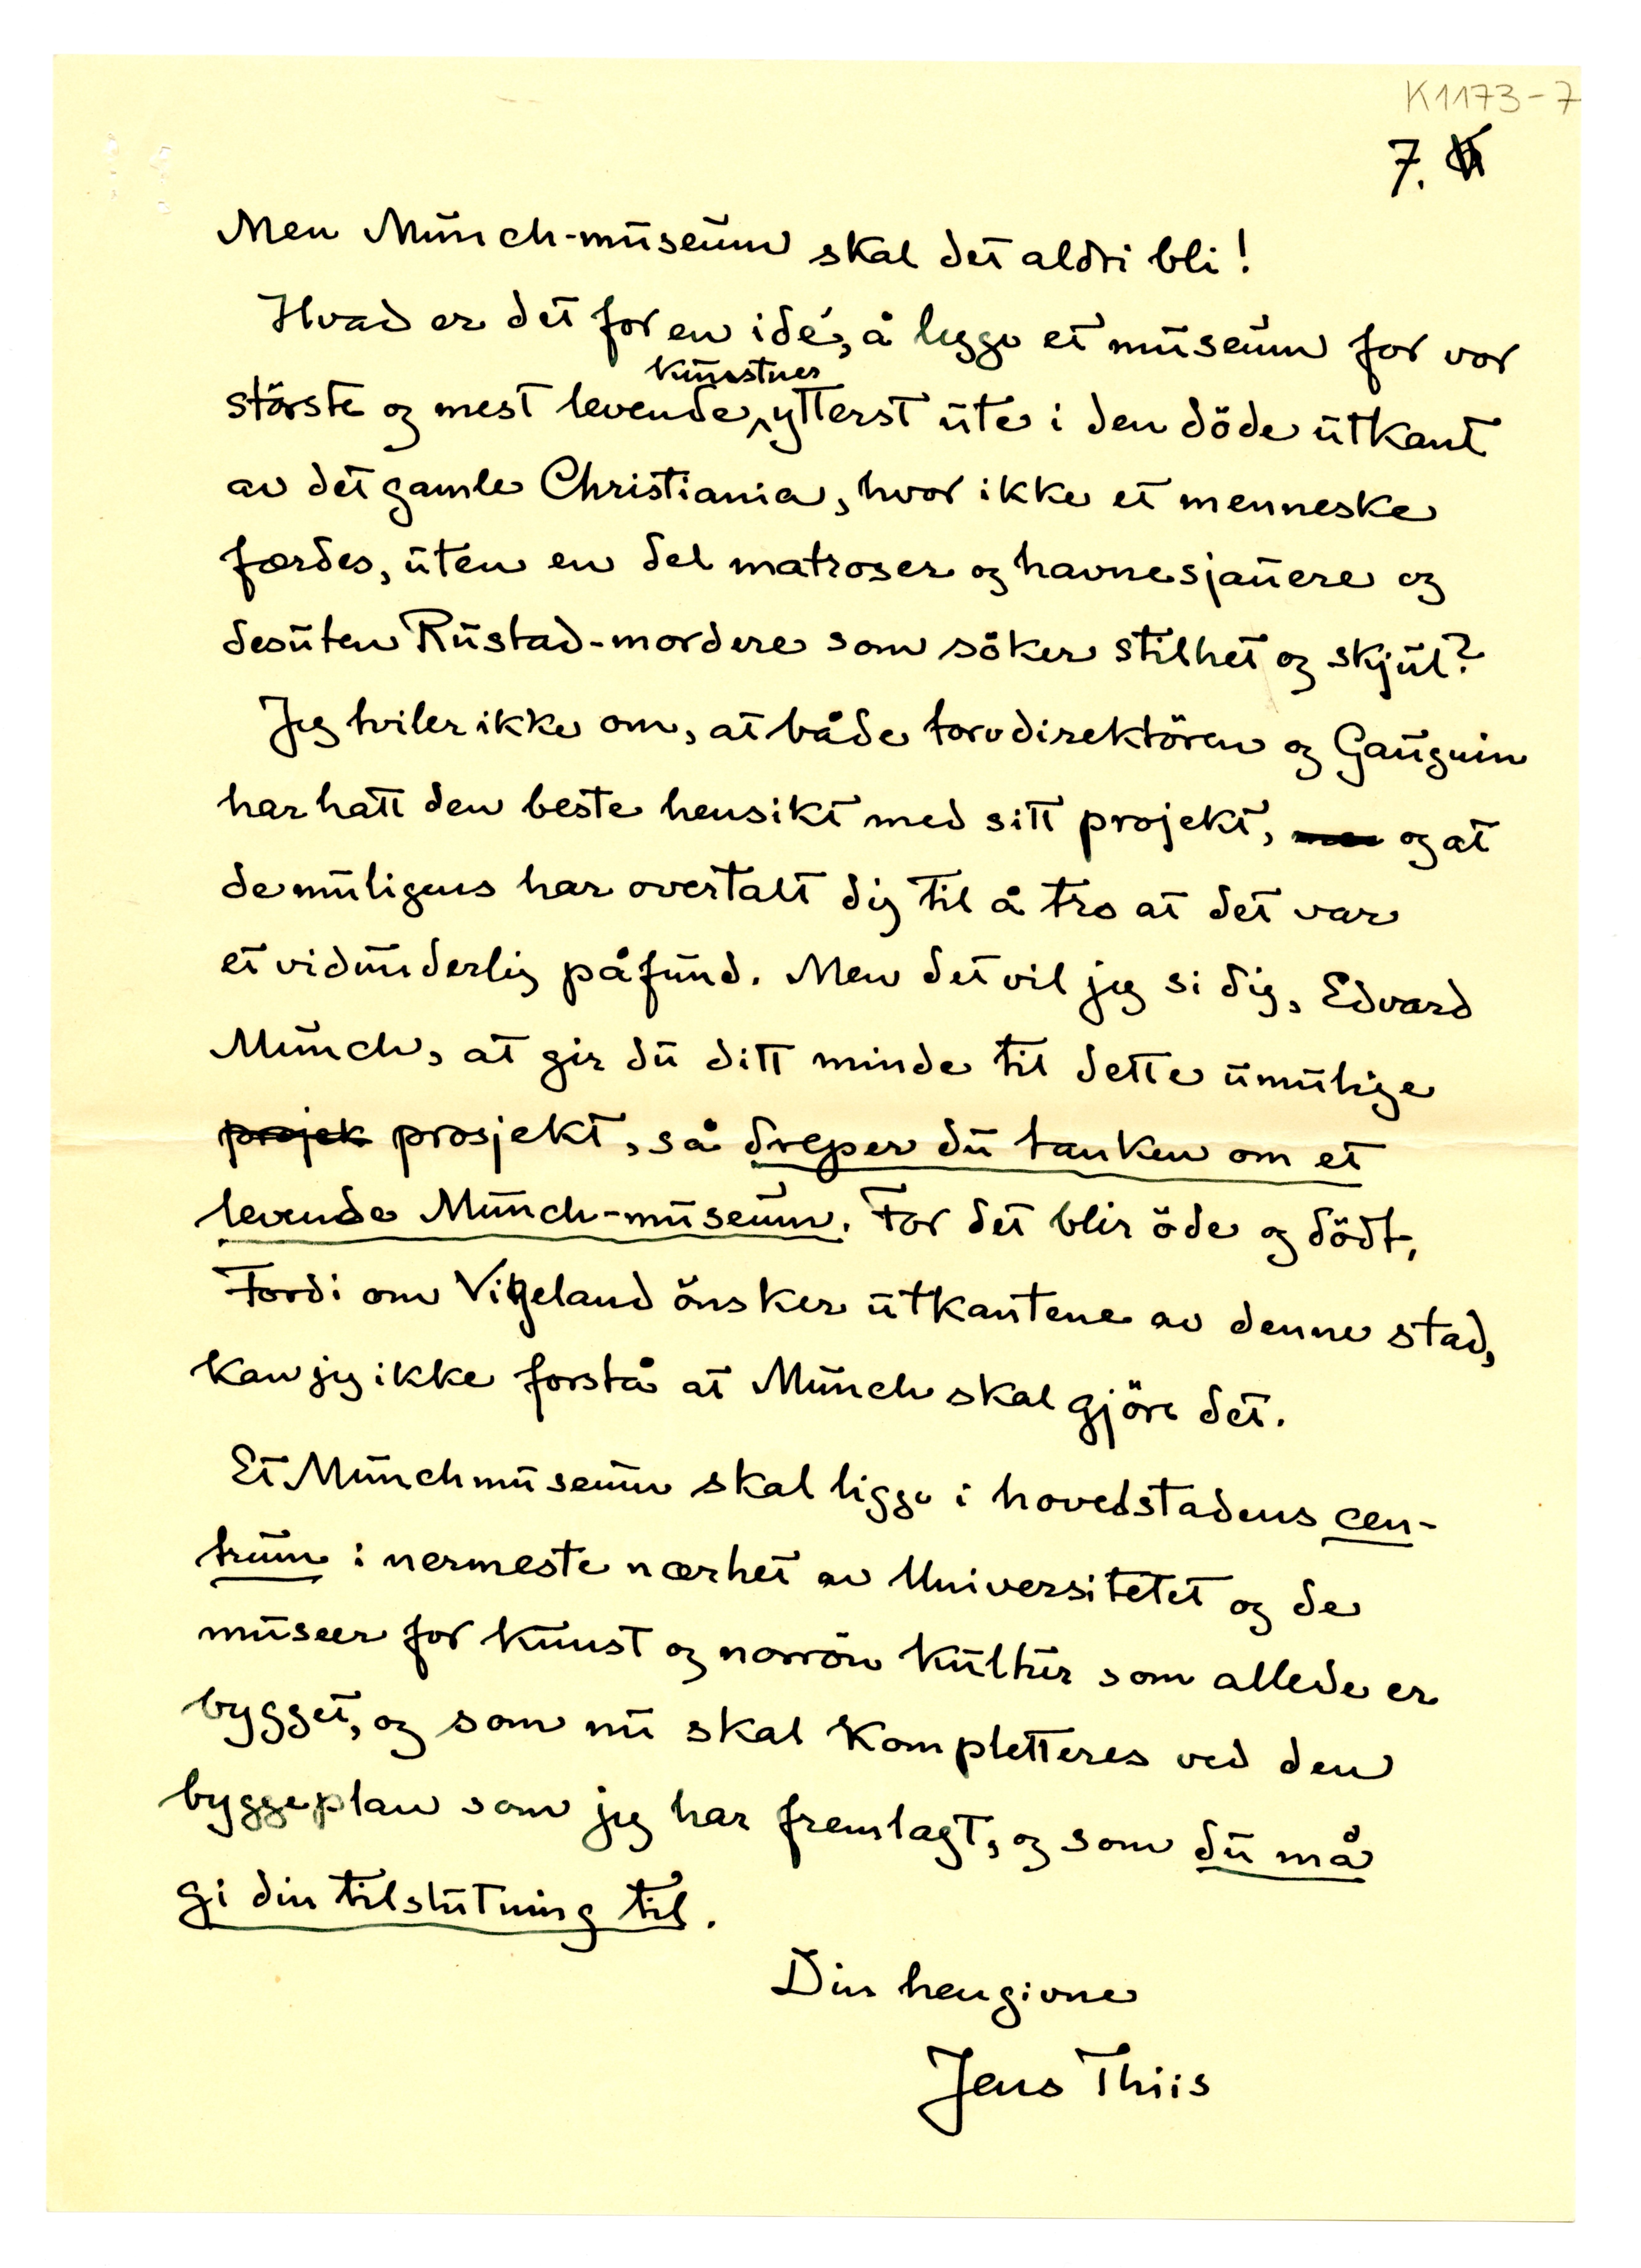 K1173-7
7.
Men Munch-museum skal det aldri bli!
Hvad er det for en idé, å legge et museum for vor
kunstner
störste og mest levende, ytterst ute i den döde utkant
av det gamle Christiania, hvor ikke et menneske
færdes, uten en del matroser og havnesjauere og
desuten Rustad-mordere som söker stilhet og skjul?
Jeg tviler ikke om, at både torvdirektören og Gauguin
har hatt den beste hensikt med sitt projekt, og at
de muligens har overtalt dig til å tro at det var
et vidunderlig påfund. Men det vil jeg si dig, Edvard
Munch, at gir du ditt minde til dette umulige
projek prosjekt, så dreper du tanken om et
levende Munch-museum. For det blir öde og dödt,
Fordi om Vigeland önsker utkantene av denne stad,
kan jeg ikke forstå at Munch skal gjöre det.
Et Munchmuseum skal ligge i hovedstadens cen-
trum i nermeste nærhet av Universitetet og de
museer for kunst og norrön kultur som allede er
bygget, og som nu skal kompletteres ved den
byggeplan som jeg har fremlagt, og som du må
gi din tilslutning til.
Din hengivne
Jens Thiis